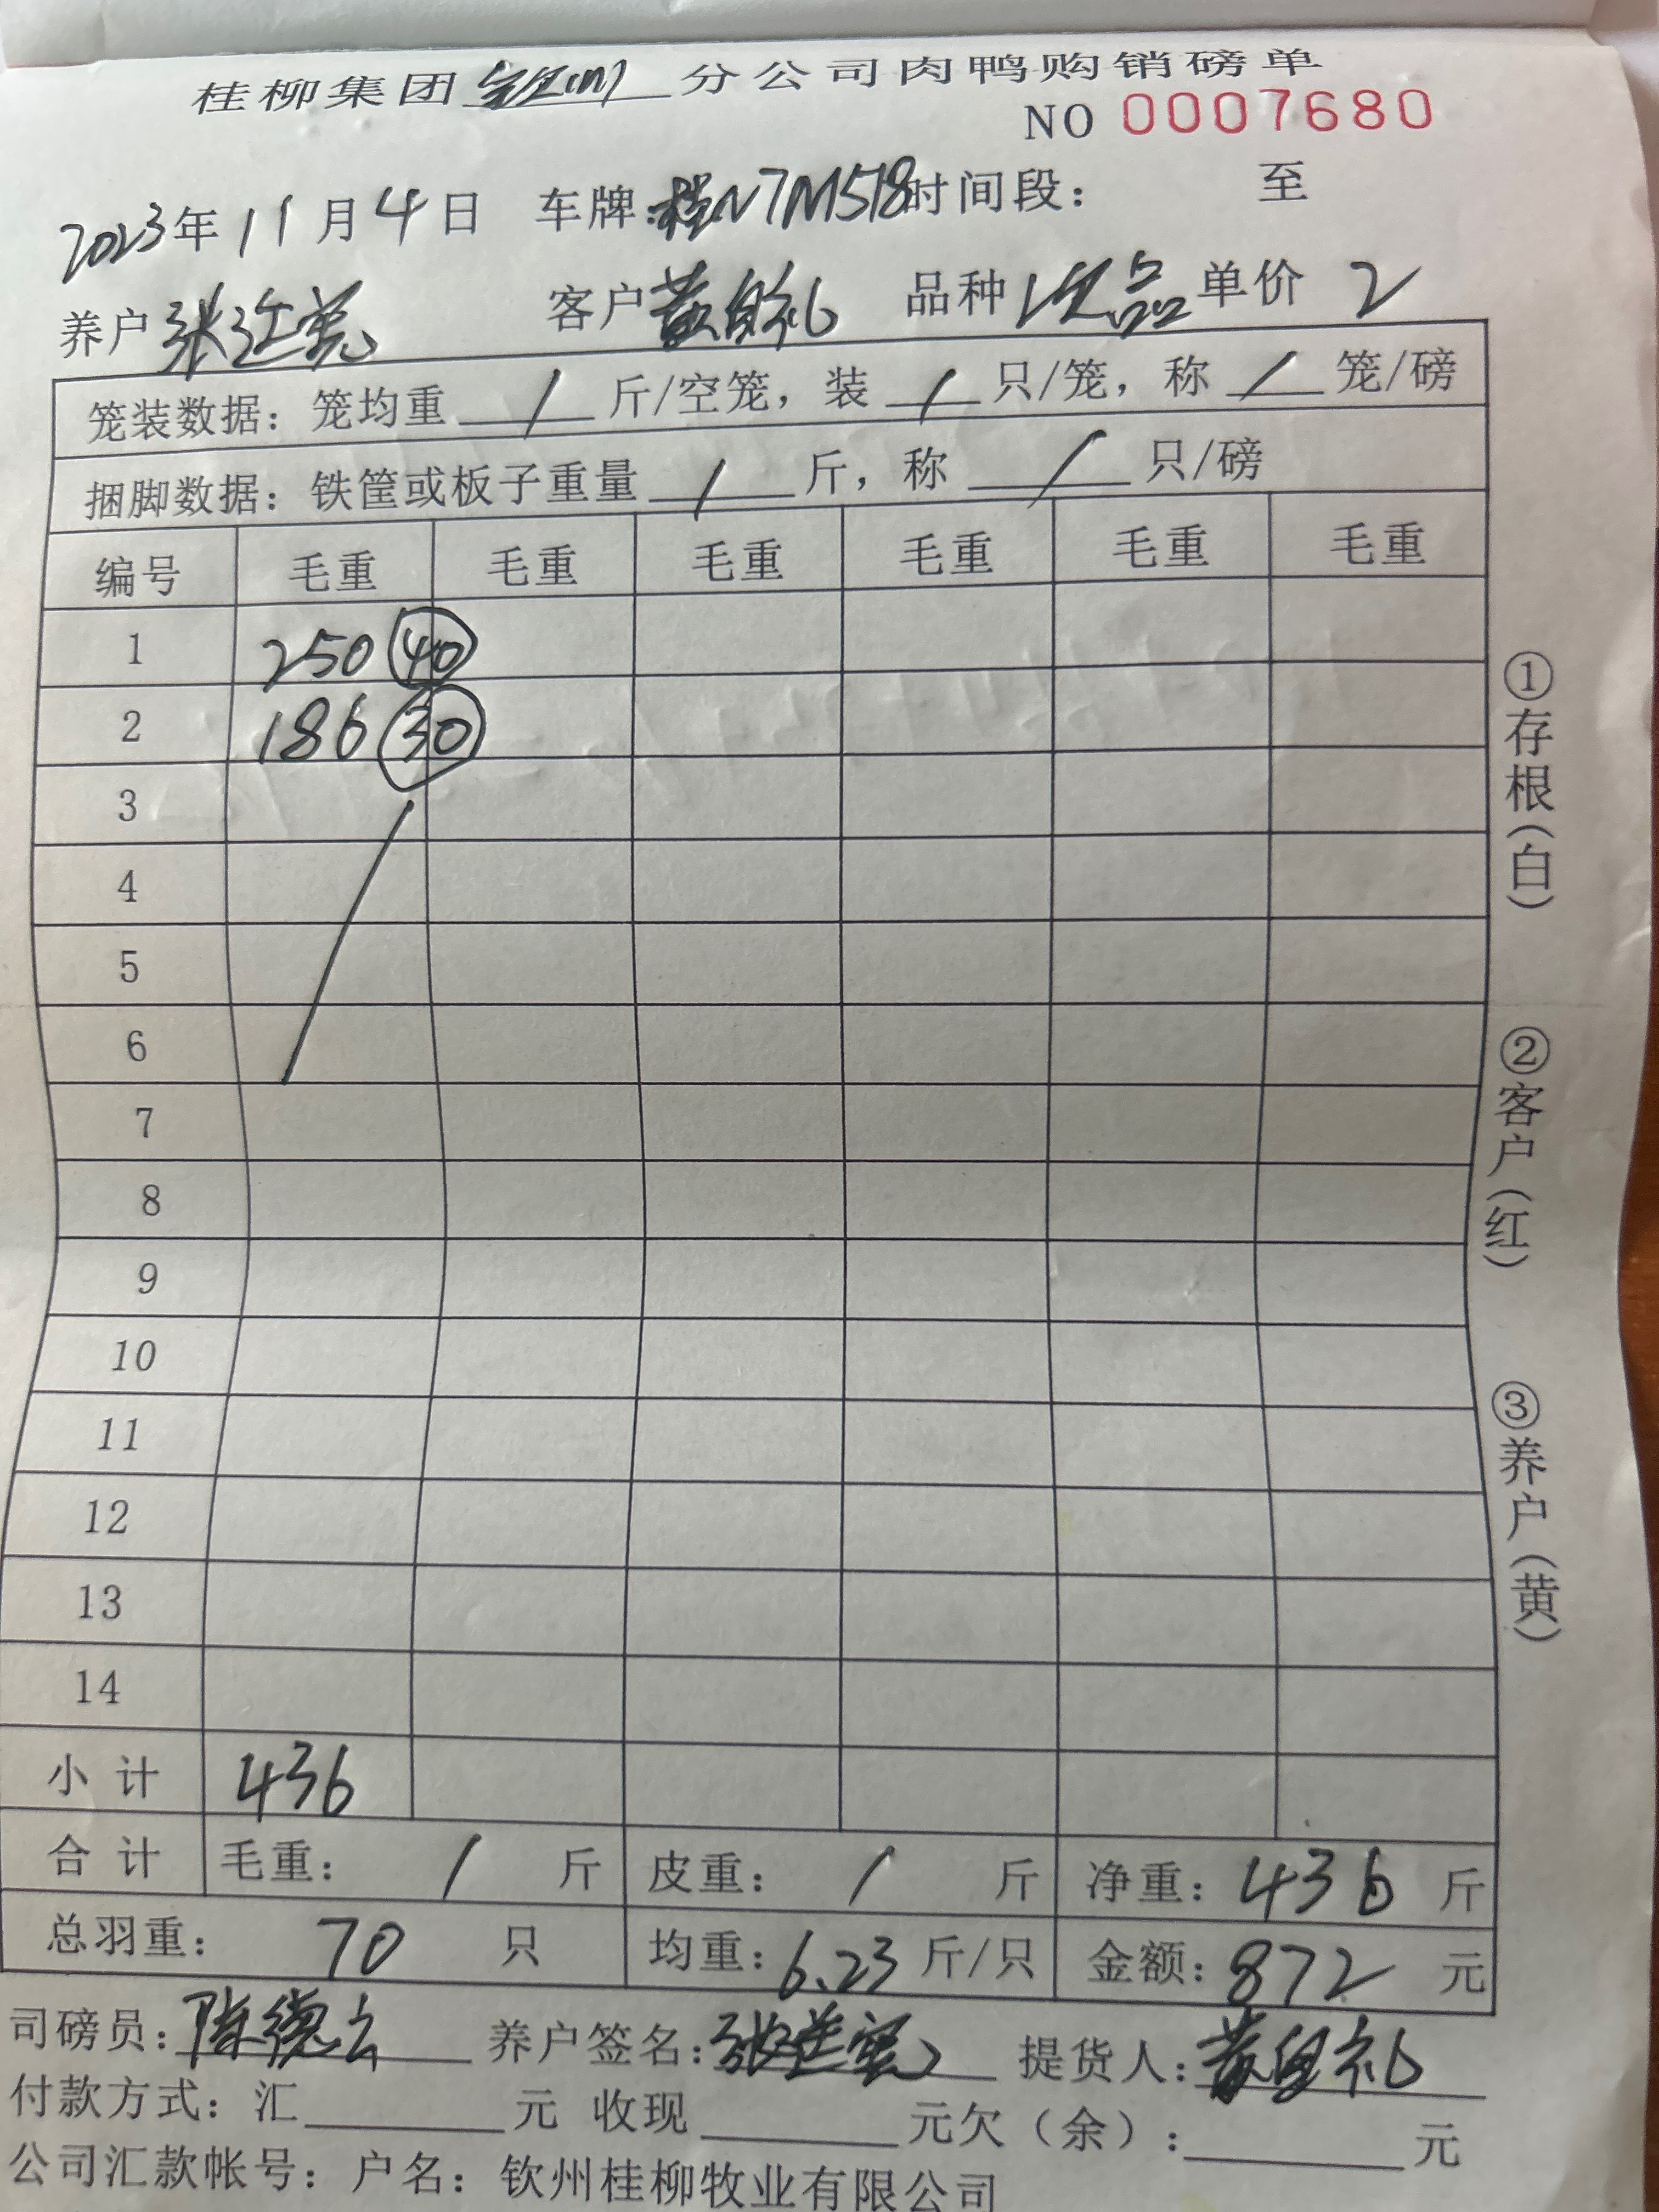 桂柳集团钦州分公司肉鸭购销磅单
NO 0007680
2023年11月4日 车牌:桂N7M518时间段: 至
养户张 客户黄礼 品种次品 单价 2
笼装数据:笼均重 / 斤/空笼,装 / 只/笼,称 / 笼/磅
捆脚数据:铁筐或板子重量 / 斤,称 / 只/磅
编号 毛重 毛重 毛重 毛重 毛重 毛重
1 250 40
2 186 30
3
4
5
6
7
8
9
10
11
12
13
14
小计 436
合计 毛重: / 斤 皮重: / 斤 净重:436 斤
总羽重: 70 只 均重:6.23 斤/只 金额:872 元
司磅员:陈德云 养户签名:张 提货人:黄礼
付款方式:汇 元 收现 元欠(余): 元
公司汇款帐号:户名:钦州桂柳牧业有限公司
①存根(白)
②客户(红)
③养户(黄)